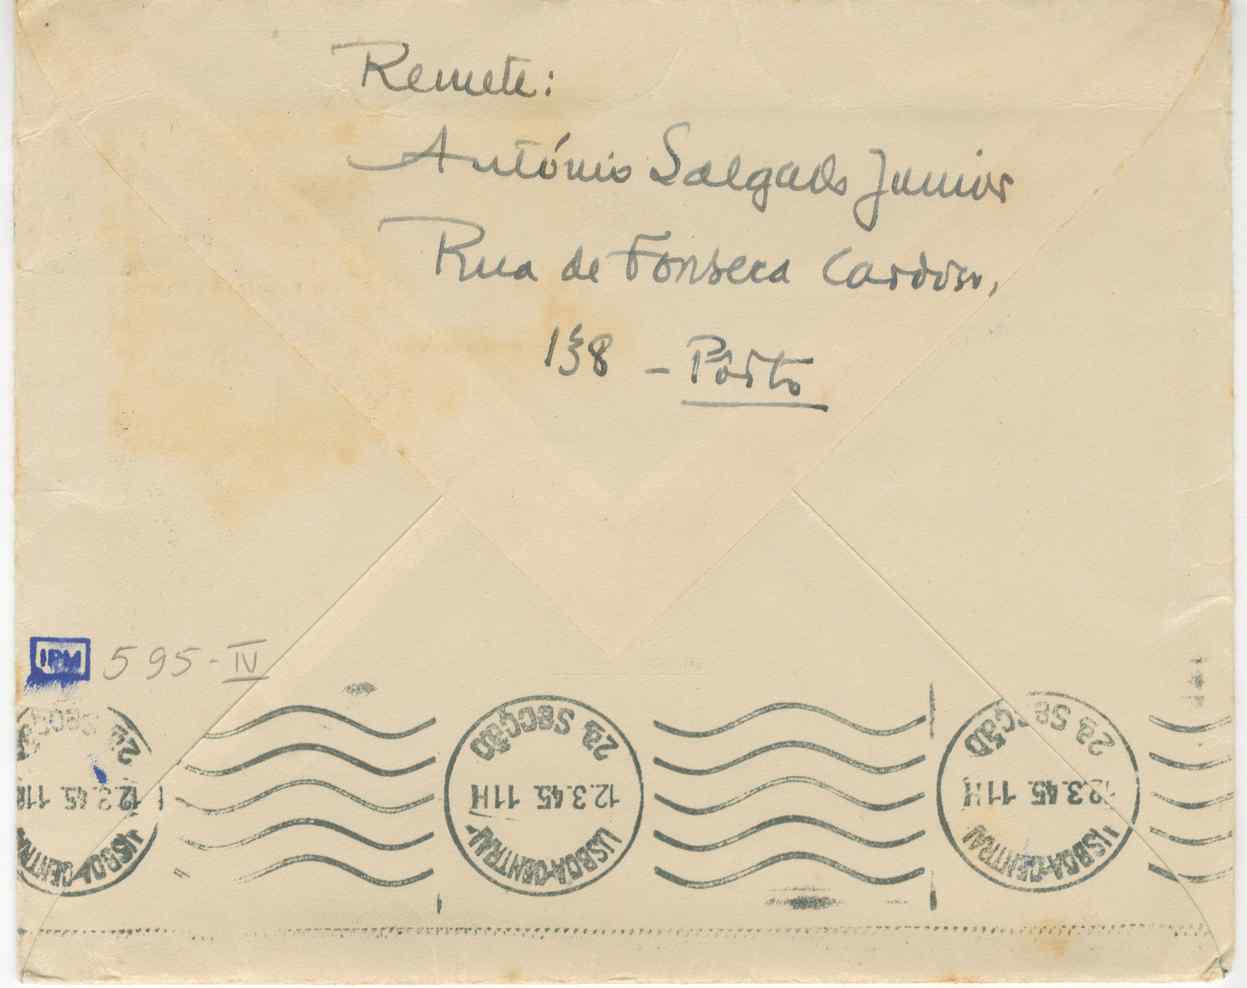 Remete:
António Salgado Junior
Rua de Fonseca Cardoso,
138 - Pôrto
IPM 595-IV
2ª. SECÇÃO 12.3.45. 11H LISBOA-CENTRAL
2ª. SECÇÃO 12.3.45. 11H LISBOA-CENTRAL
2ª. SECÇÃO 12.3.45. 11H LISBOA-CENTRAL